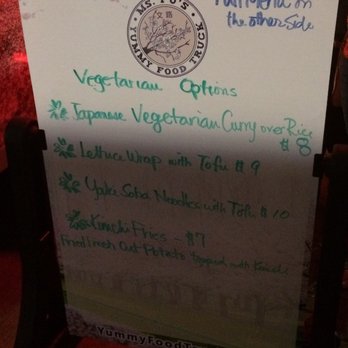 MS. FU'S
YUMMY FOOD TRUCK
Full Menu on
the other Side
Vegetarian Options
Japanese Vegetarian Curry over Rice
$8
Lettuce Wrap with Tofu $9
Yaki Soba Noodles with Tofu $10
Kimchi Fries - $7
Fried Fresh Cut Potato Topped with Kimchi
YummyFoodT